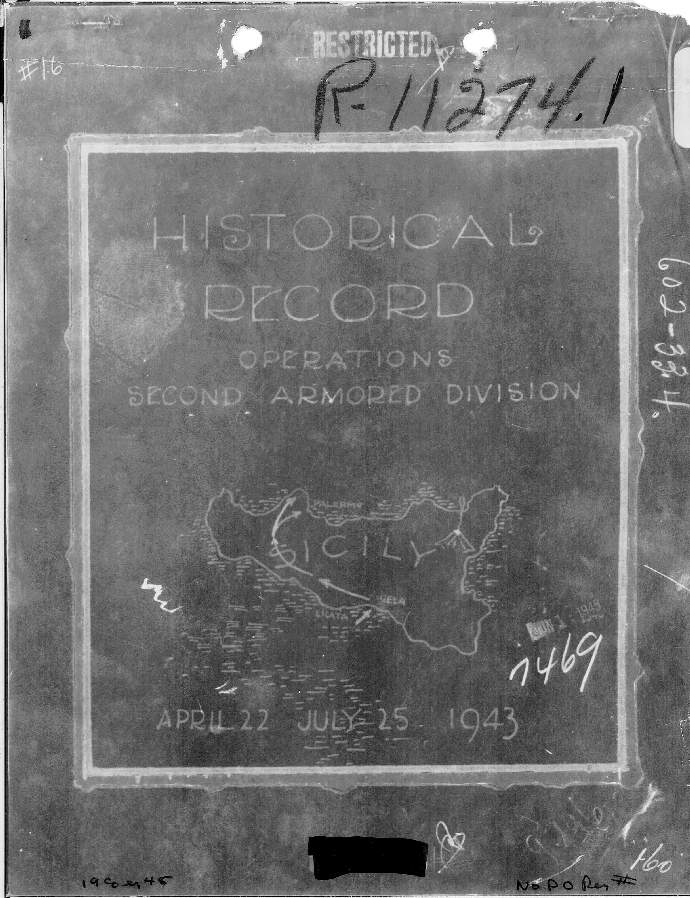 #16
RESTRICTED
R-11274.1
602-33
HISTORICAL
RECORD
OPERATIONS
SECOND ARMORED DIVISION
PALERMO
SICILY
GELA
LICATA
1943
7469
APRIL 22 JULY 25 1943
160
No PO Reg #